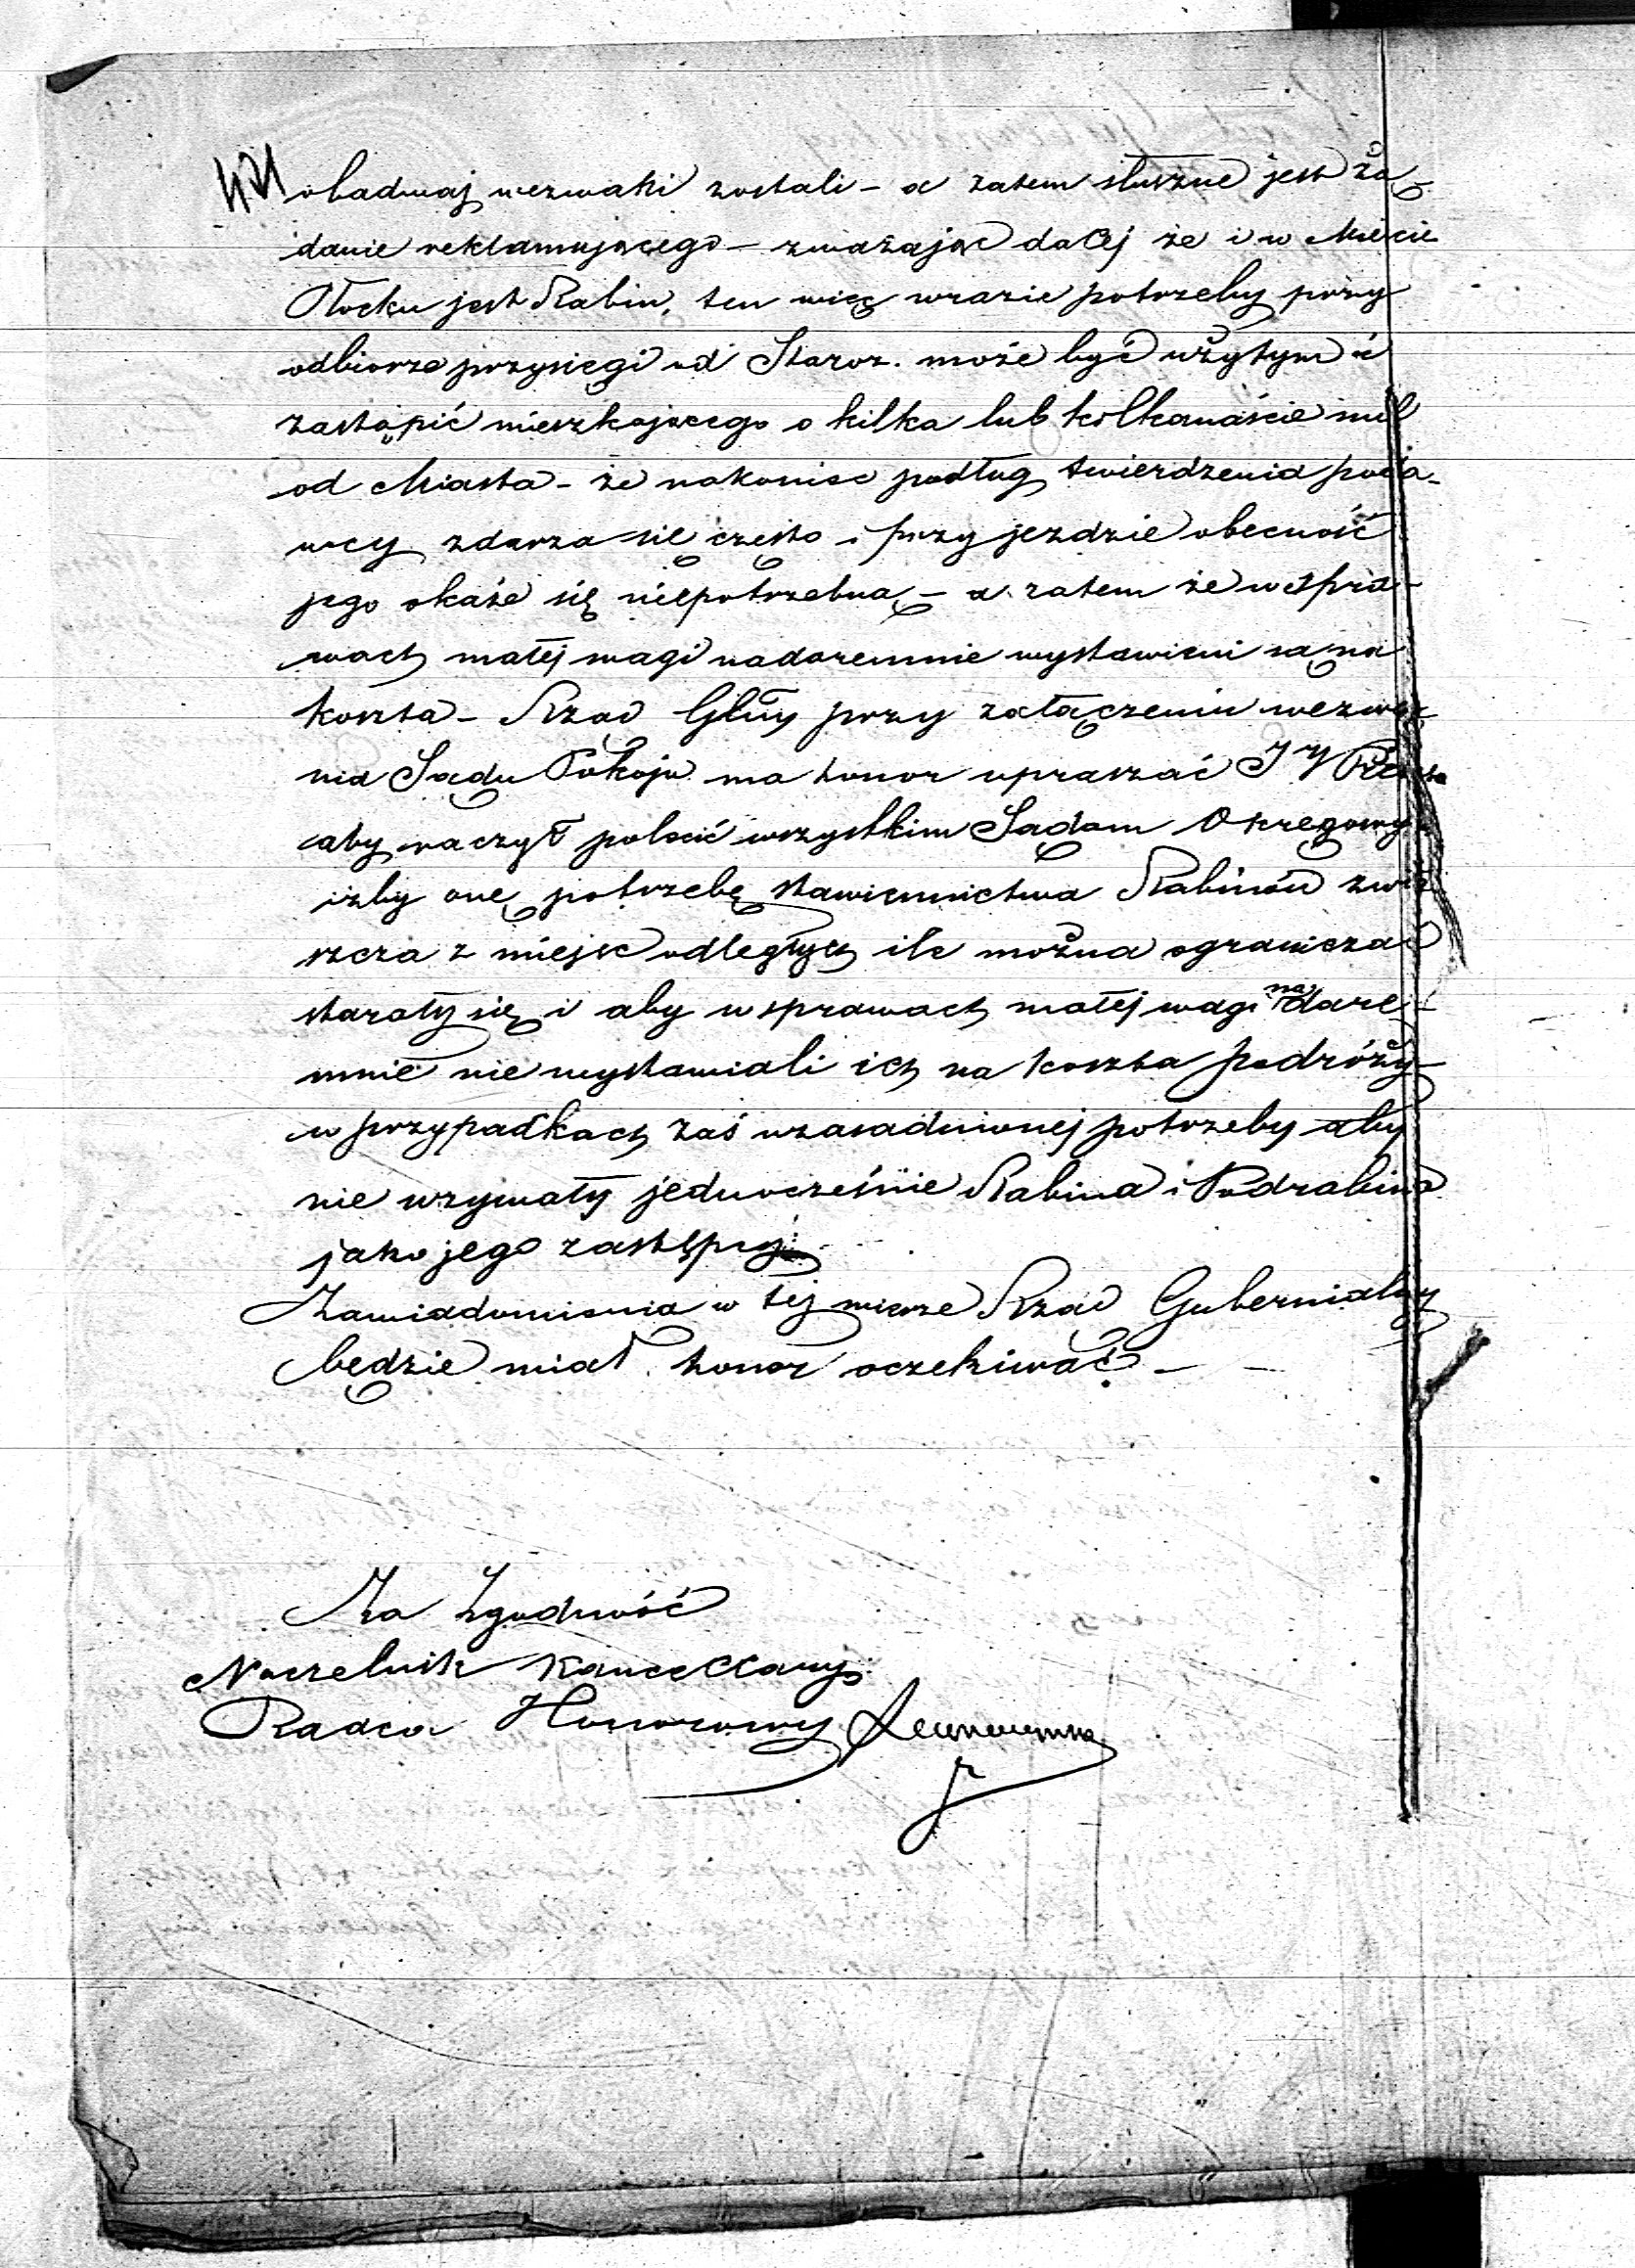 obadwaj wezwani zostali – a zatem słuszne jest żą-
danie reklamującego – zważając dalej że i w Mieście
Płocku jest Rabin, ten więc wrazie potrzeby przy
odbiorze przysięgi od Staroz. może być użytym i
zastąpić mieszkającego o kilka lub kilkanaście mil
od Miasta – że nakoniec podług twierdzenia poda-
wcy zdarza się często i przy jezdzie obecność
jego okaże się niepotrzebną – a zatem że w spra-
wach małej wagi nadaremnie wystawieni są na
koszta – Rząd Głny przy załączeniu wezwa
nia Sądu Pokoju ma honor upraszać JW
aby raczył polecić wszystkim Sądom Okręgowy
iżby one potrzebę stawiennictwa Rabinów zwła
szcza z miejsc odległych ile można ograniczać
starały się i aby w sprawach małej wagi nadare-
mnie nie wystawiali ich na koszta podróży –
w przypadkach zaś uzasadnionej potrzeby aby
nie wzywały jednocześnie Rabina i Podrabina
jako jego zastępcy.
Zawiadomienia w tej mierze Rząd Gubernialny
będzie miał honor oczekiwać. –
Za Zgodność
Naczelnik Kancellaryi
Radca Honorowy